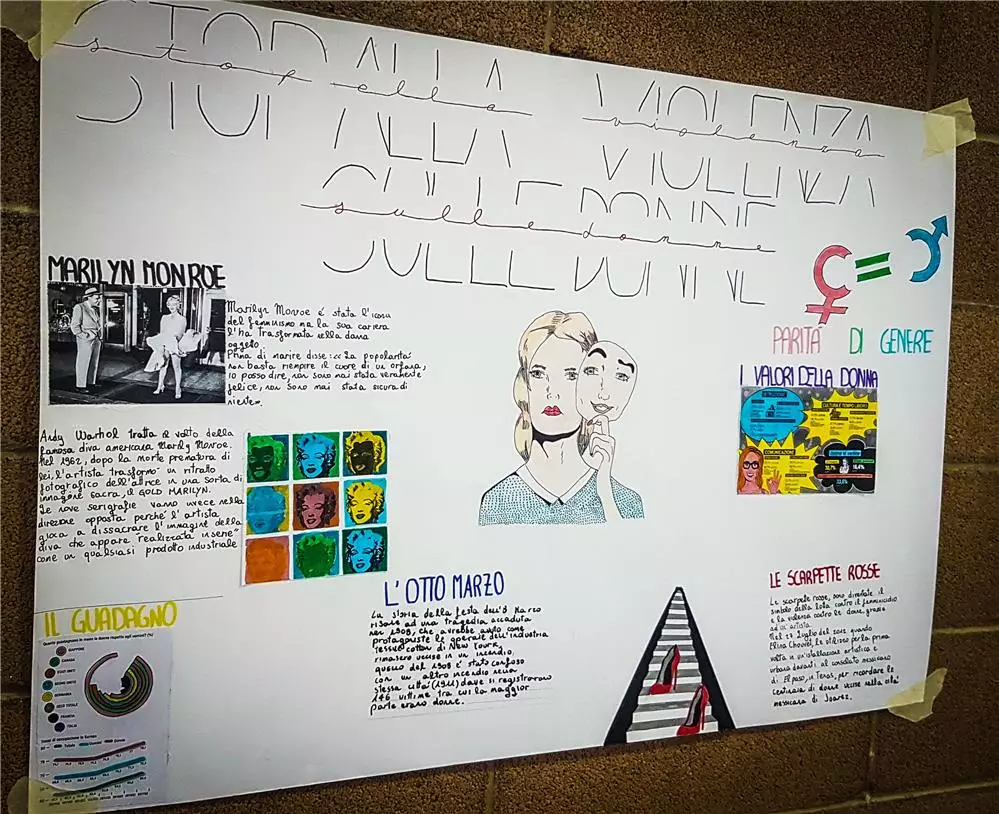 STOP ALLA VIOLENZA
stop alla violenza
SULLE DONNE
sulle donne
MARILYN MONROE
Marilyn Monroe è stata l'icona
del femminismo ma la sua cariera
l'ha trasformata nella diva
oggeto.
Prima di morire disse: << La popolarità
non basta riempire il cuore di un orfana,
io posso dire, non sono mai stata veramente
felice, non sono mai stata sicura di
niente».
Andy Warhol tratta il volto della
famosa diva americana Marily Monroe.
Nel 1962, dopo la morte prematura di
lei, l'artista trasformò un ritratto
fotografico dell'attrice in una sorta di
immagine sacra, il GOLD MARILYN.
Le nove serigrafie vanno invece nella
direzione opposta perchè l'artista
gioca a dissacrare l'immagine della
diva che appare "realizzata in serie"
come un qualsiasi prodotto industriale
PARITÀ DI GENERE
I VALORI DELLA DONNA
ISTRUZIONE
CULTURA E TEMPO LIBERO
COMUNICAZIONE
IL GUADAGNO
GIAPPONE
CANADA
STATI UNITI
GERMANIA
FRANCIA
ITALIA
L'OTTO MARZO
La storia della festa dell'8 Marzo
risale ad una tragedia accaduta
nel 1908, che avrebbe avuto come
protagoniste le operaie dell'industria
tessile Cotton di New York,
rimaste uccise in un incendio,
quello del 1908 è stato confuso
con un altro incendio nella
stessa città (1911) dove si registrarono
146 vittime tra cui la maggior
parte erano donne.
LE SCARPETTE ROSSE
Le scarpete rosse, sono diventate il
simbolo della lotta contro il femminicidio
e la violenza contro le donne, grazie
ad un'artista.
Nel 27 Luglio del 2012 quando
Elina Chauvet, le utilizzò per la prima
volta in un'istallazione artistica e
urbana davanti al consolato messicano
di El paso, in Texas, per ricordare le
centinaia di donne uccise nella città
messicana di Juarez.